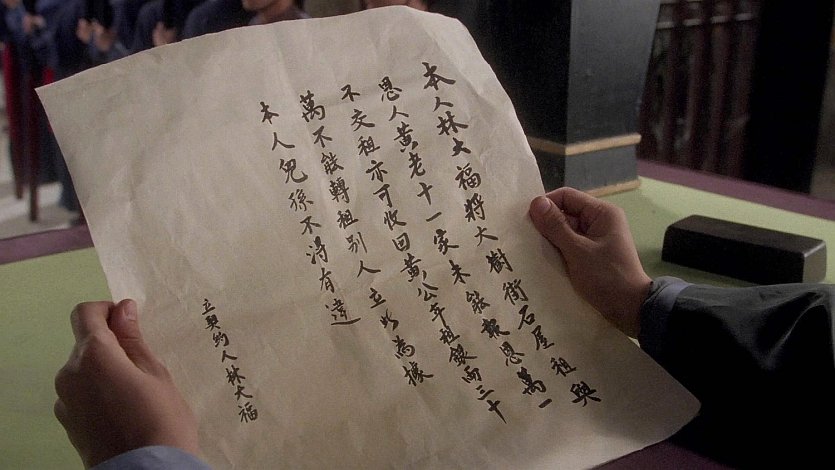 本人林大福將大樹街石屋租與
恩人黃老十一家未能報恩萬一
不交租亦可收回黃公年租銀兩三十
萬不能轉租別人立此為據
本人兒孫不得有違
立契約人林大福